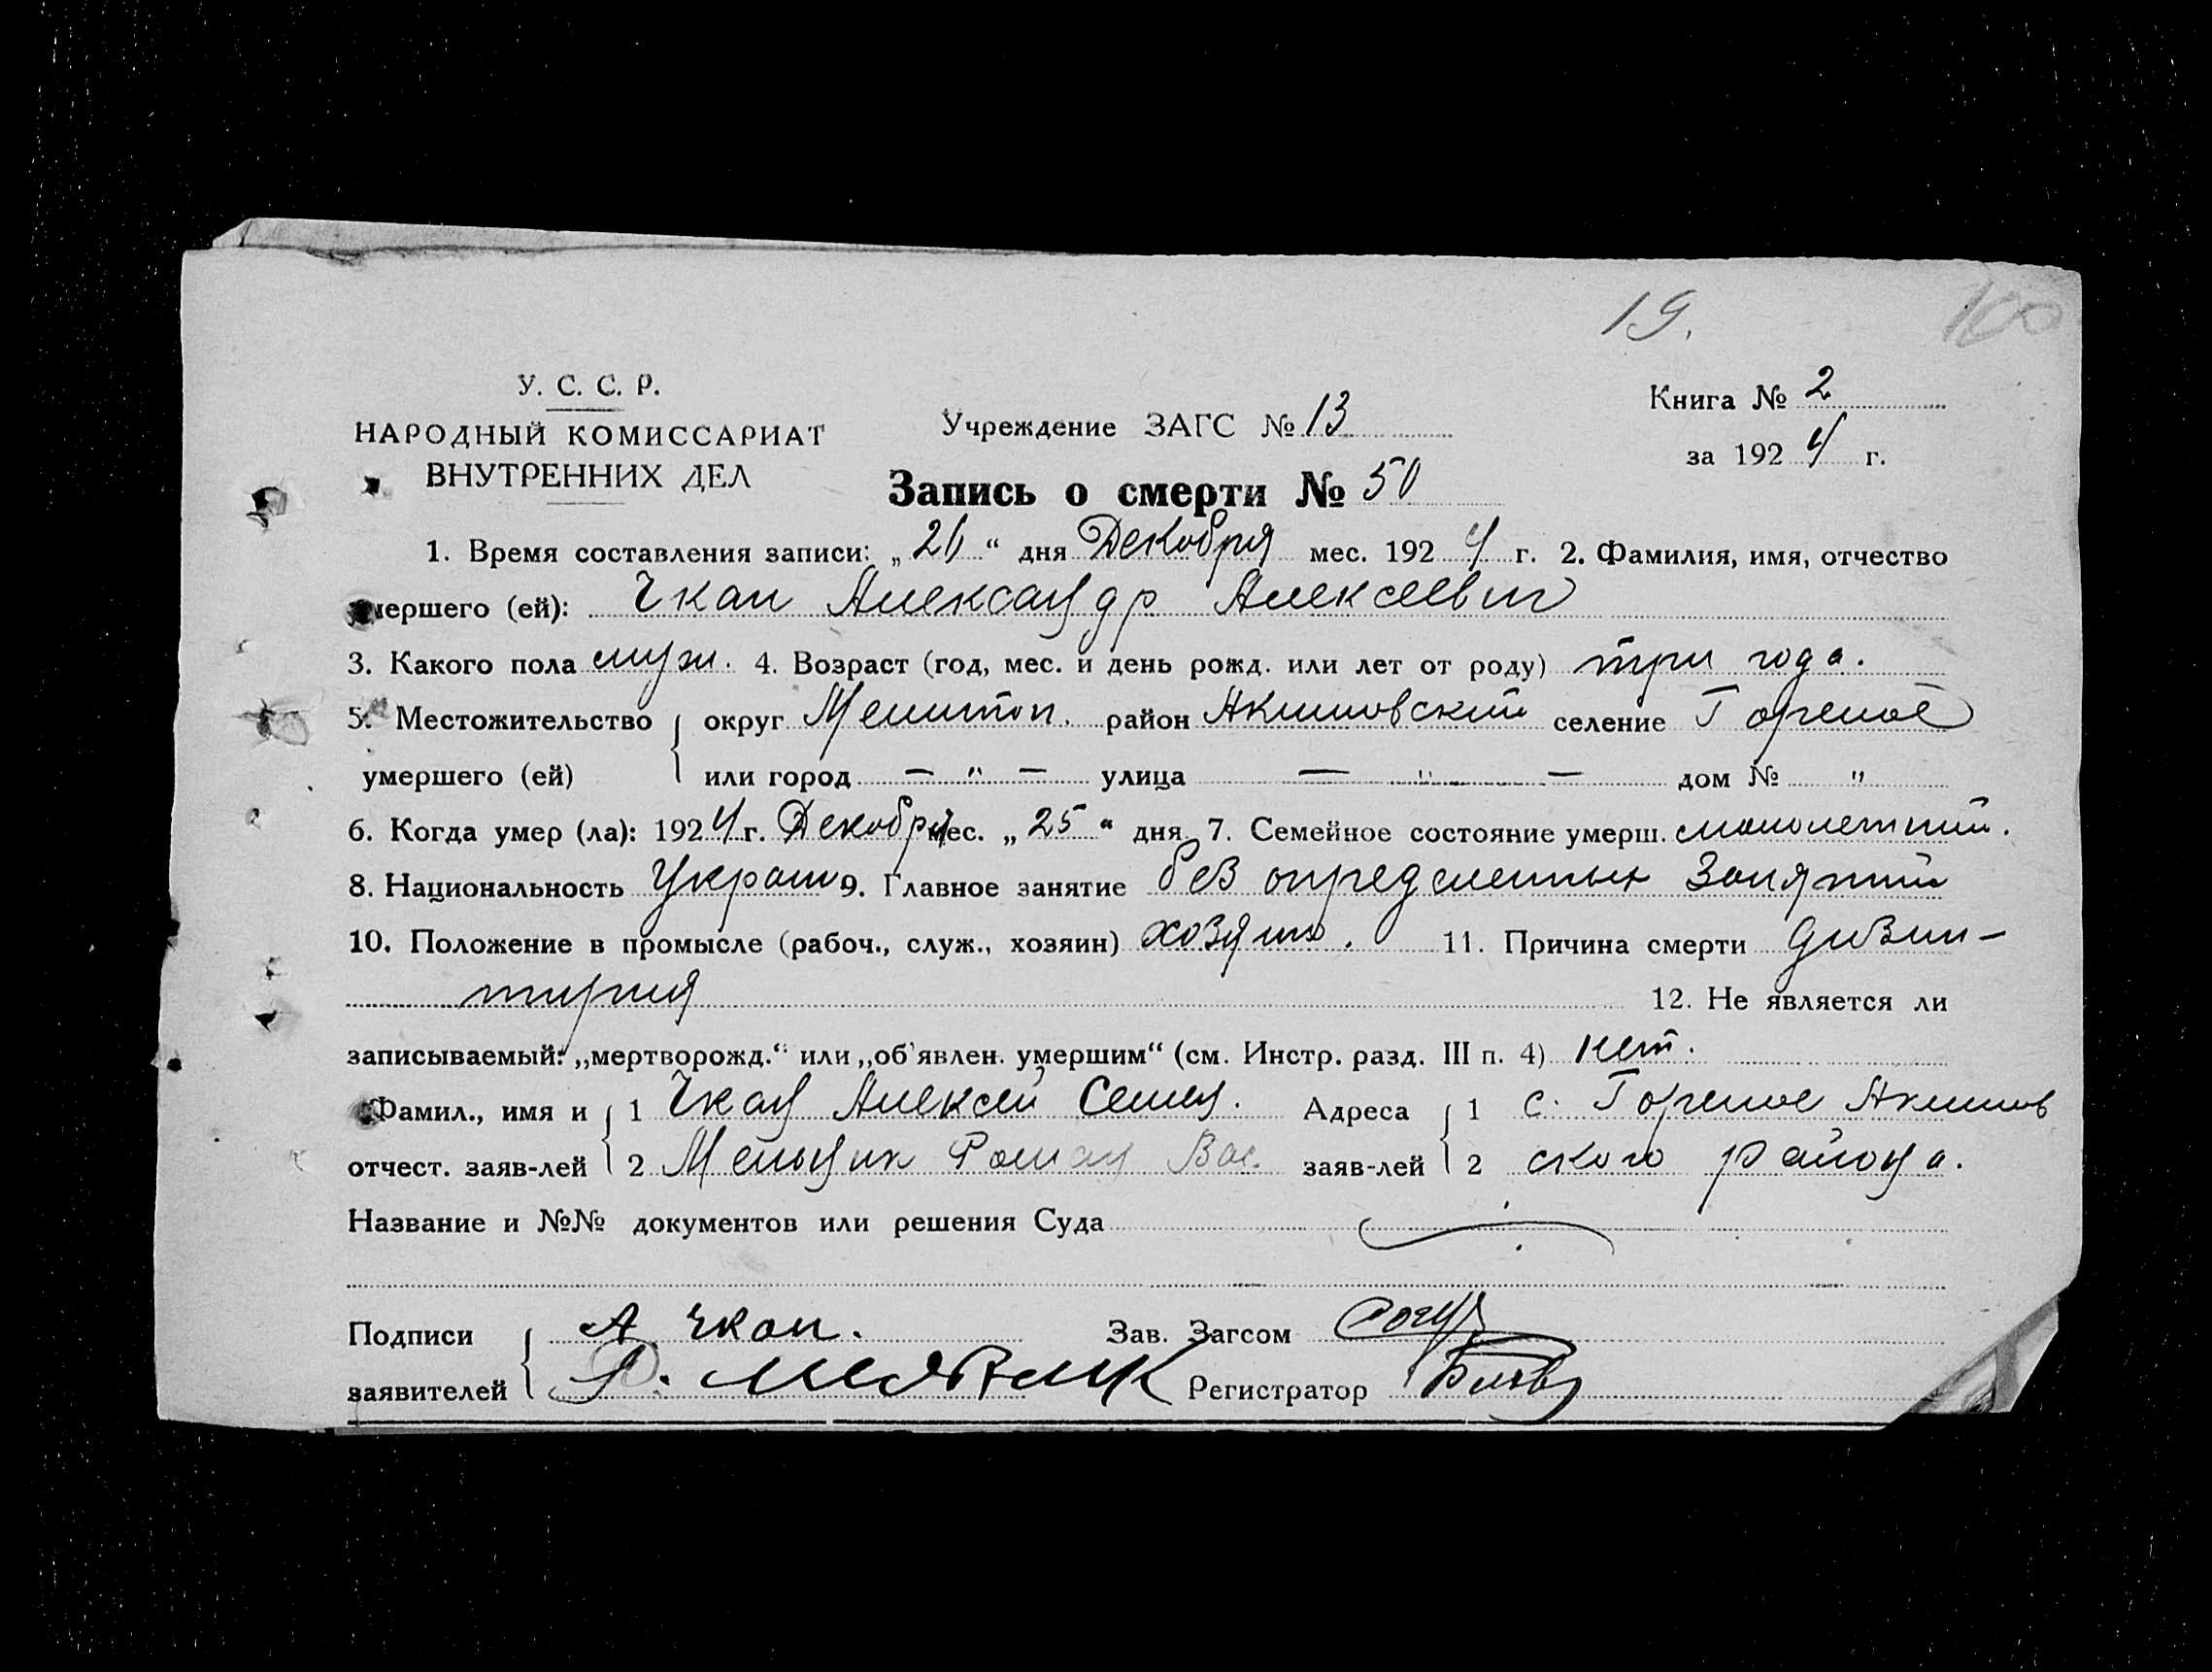 19.
100
У. С. С. Р.
НАРОДНЫЙ КОМИССАРИАТ
ВНУТРЕННИХ ДЕЛ
Учреждение ЗАГС № 13
Книга № 2
за 1924 г.
Запись о смерти № 50
1. Время составления записи: „26“ дня Декабря мес. 1924 г. 2. Фамилия, имя, отчество
умершего (ей): Чкан Александр Алексеевич
3. Какого пола муж. 4. Возраст (год, мес. и день рожд. или лет от роду) три года.
5. Местожительство округ Мелитоп. район Акимовский селение Горелое
умершего (ей) или город — " — улица — " — дом № "
6. Когда умер (ла): 1924 г. Декабря мес. „25“ дня 7. Семейное состояние умерш. малолетний.
8. Национальность Украин 9. Главное занятие без определенных занятий
10. Положение в промысле (рабоч., служ., хозяин) хозяин. 11. Причина смерти дизин-
тирия 12. Не является ли
записываемый: „мертворожд.“ или „об'явлен. умершим“ (см. Инстр. разд. III п. 4) нет.
Фамил., имя и 1 Чкан Алексей Семен. Адреса 1 с. Горелое Акимов
отчест. заяв-лей 2 Мельник Роман Вас. заяв-лей 2 ского района.
Название и №№ документов или решения Суда
Подписи А Чкан. Зав. Загсом
заявителей Р. Регистратор